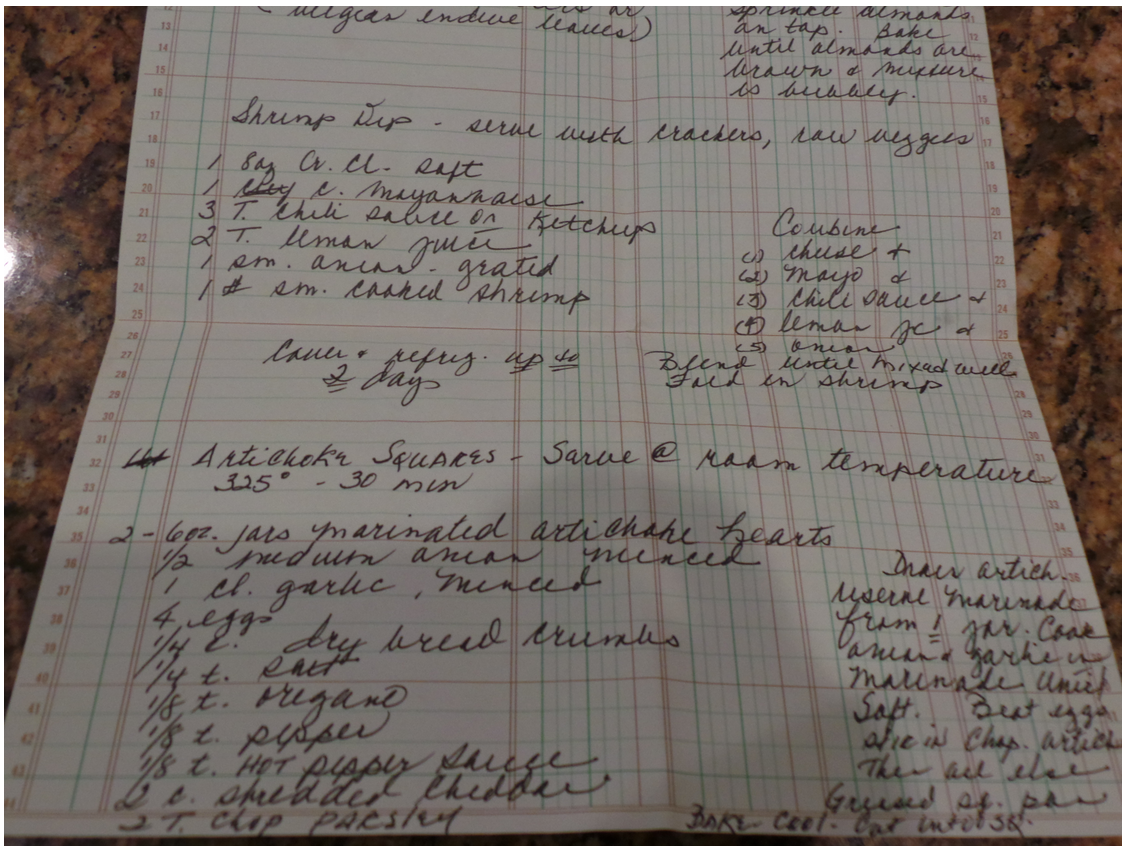 (Belgian endive
leaves)
sprinkle almonds
on top. Bake
until almonds are
brown & mixture
is bubbly.
Shrimp Dip - serve with crackers, raw veggies
1 8oz Cr. Ch. soft
1 c. mayonnaise
3 T. chili sauce or Ketchup
2 T. lemon juice
1 sm. onion - grated
1 # sm. cooked shrimp
Cover & refrig. up to
2 days
Combine
(1) cheese +
(2) mayo &
(3) chili sauce +
(4) lemon jc &
(5) onion
Blend until mixed well
Fold in shrimp
Artichoke Squares - Serve @ room temperature
325° - 30 min
2 - 6oz. jars marinated artichoke hearts
1/2 medium onion minced
1 cl. garlic, minced
4 eggs
1/4 c. dry bread crumbs
1/4 t. salt
1/8 t. oregano
1/8 t. pepper
1/8 t. HOT pepper sauce
2 c. shredded cheddar
2 T. chop PARSLEY
Drain artich.
reserve marinade
from 1 jar. Cook
onion & garlic in
marinade until
soft. Beat eggs
stir in chop. artich
Then all else
Greased sq. pan
BAKE - Cool. Cut into sq.
12
13
15
16
17
19
20
21
22
23
24
25
26
27
28
29
30
31
32
33
35
36
37
38
39
40
41
42
43
44